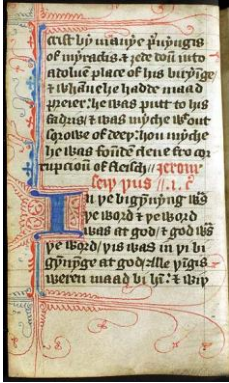 crist by manye tokenyngis
of myraclis. & zede doun into
a doluen place of his biryinge
& whanne he hadde maad
preier: he was putt to his
fadris/ & was myche wt out
sorowe of deep: hou myche
he was founden clene fro cor
rupcioun of fleisch// Jerom
seiþ þus // .i. c
In ye bigynnyng was
ye word & ye word
was at god/ & god was
ye word/ yis was in yi bi
gynynge at god/ Alle yingis
weren maad bi him: & wiy